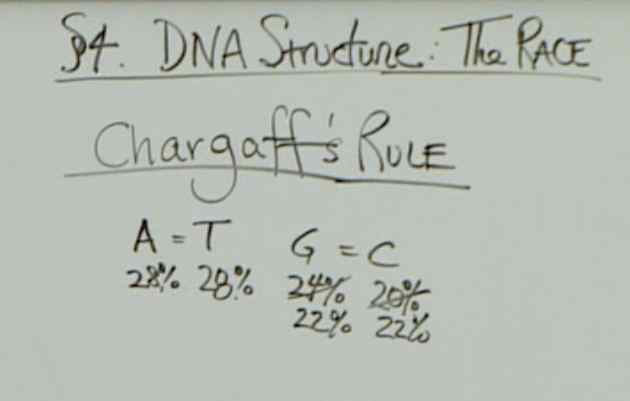 §4. DNA Structure: The RACE
Chargaff's RULE
A = T G = C
28% 28% 24% 20%
22% 22%